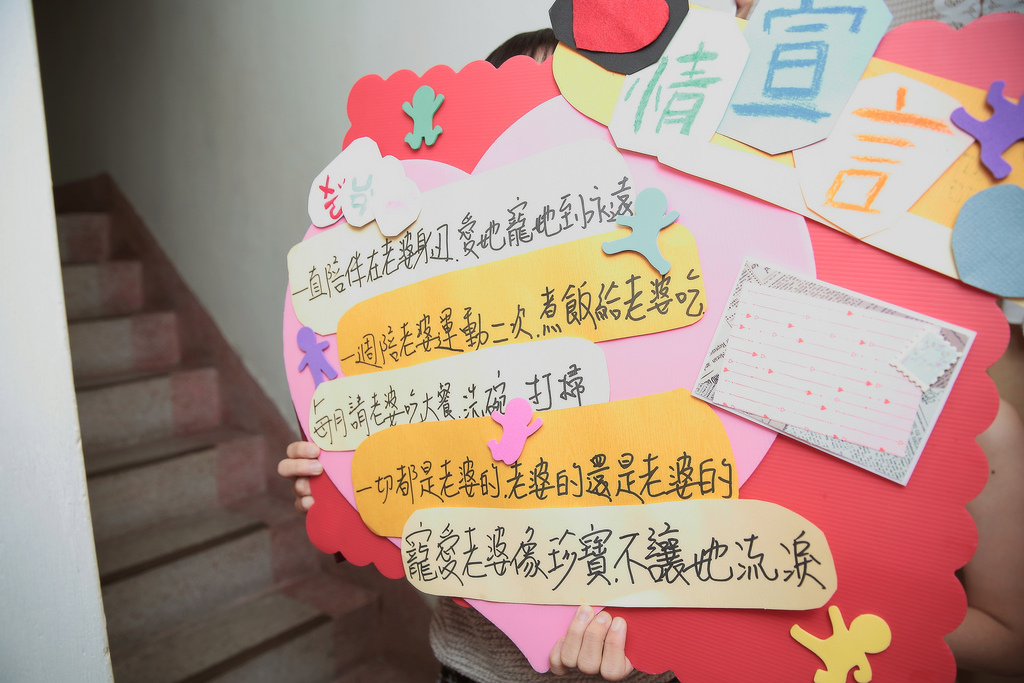 情宣言
一直陪伴在老婆身边.愛她寵她到永遠
一週陪老婆運動二次.煮飯給老婆吃.
每月請老婆吃大餐.洗碗.打掃
一切都是老婆的.老婆的還是老婆的
寵愛老婆像珍寶.不讓她流淚